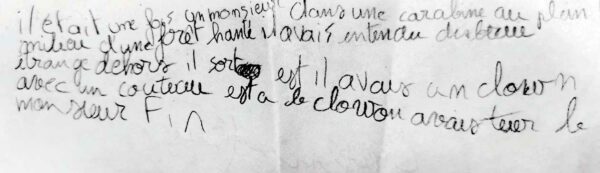 il était une fois un monsieur dans une carabine au plin
milieu d'une forêt hanté il avais entendu
étrange dehors il sort est il avais un clown
avec un couteau est a le clowon avais tuer le
monsieur Fin